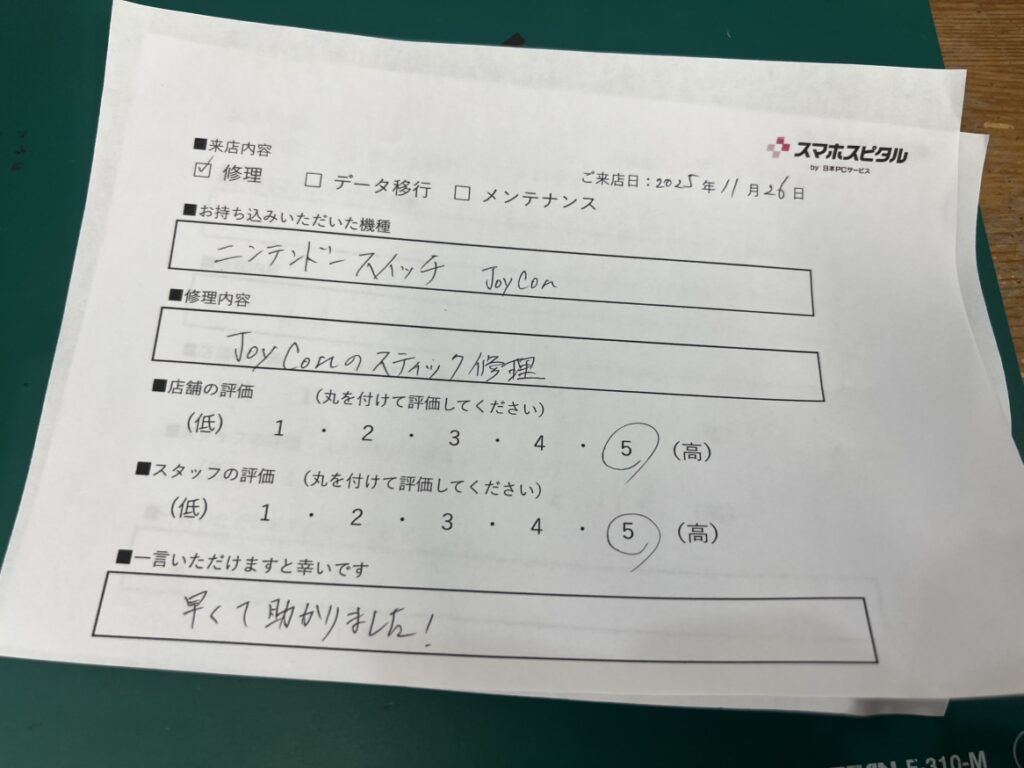 ■来店内容
スマホスピタル
by 日本PCサービス
☑ 修理 □ データ移行 □ メンテナンス
ご来店日:2025年11月26日
■お持ち込みいただいた機種
ニンテンドースイッチ JoyCon
■修理内容
JoyConのスティック修理
■店舗の評価 (丸を付けて評価してください)
(低) 1 ・ 2 ・ 3 ・ 4 ・ 5 (高)
■スタッフの評価 (丸を付けて評価してください)
(低) 1 ・ 2 ・ 3 ・ 4 ・ 5 (高)
■一言いただけますと幸いです
早くて助かりました!
F-310-M